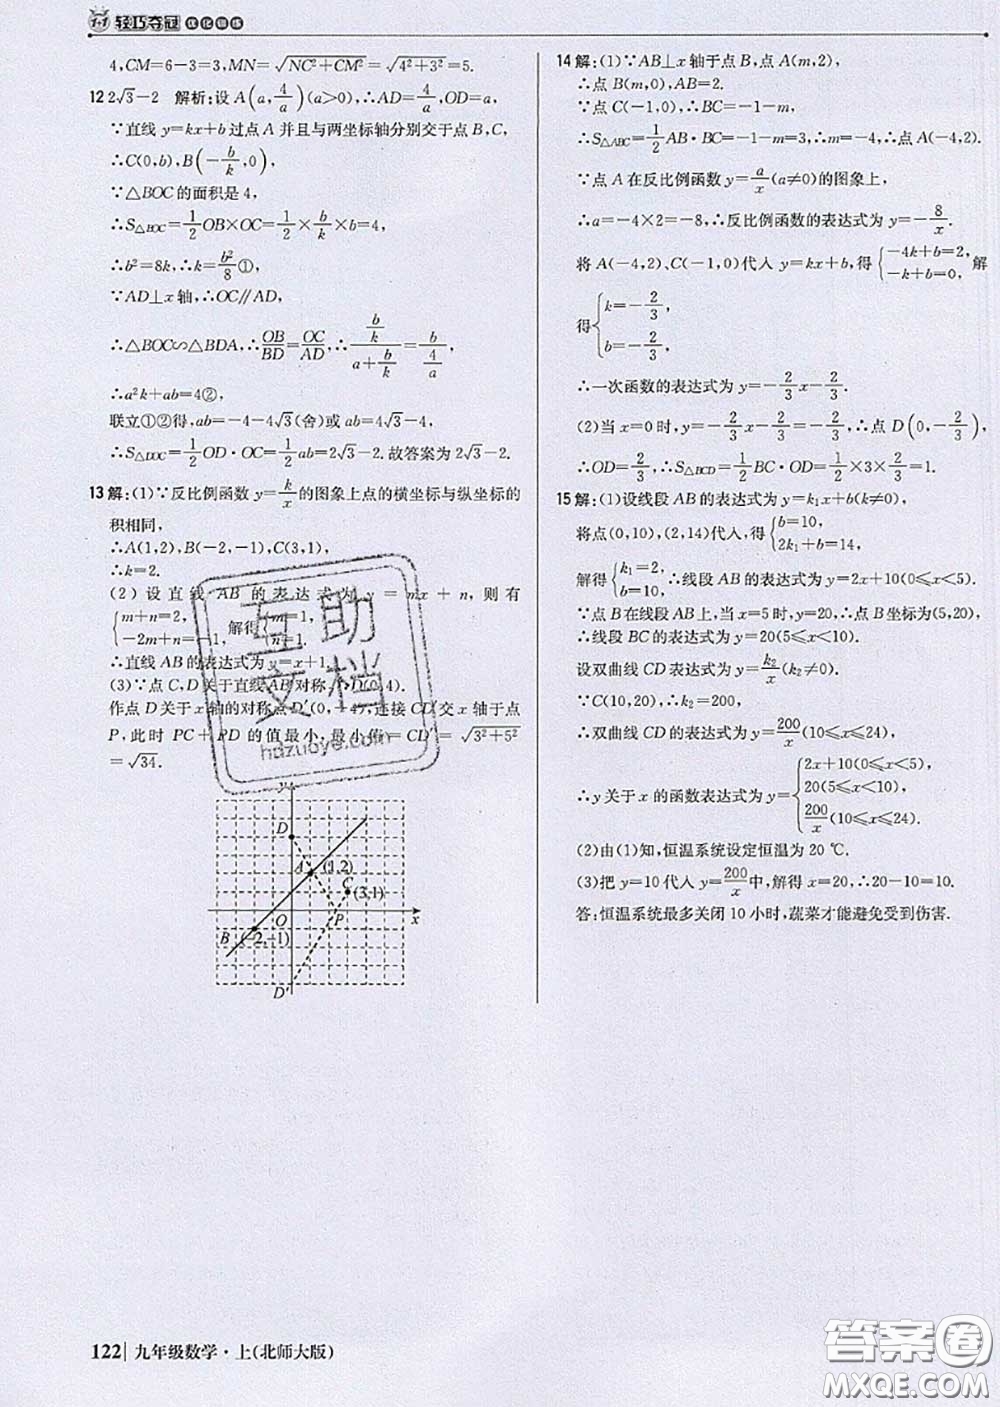 1+1 轻巧夺冠 优化训练
4,CM=6-3=3,MN=√(NC²+CM²)=√(4²+3²)=5.
12 2√3-2 解析:设A(a,4/a)(a>0),∴AD=4/a,OD=a,
∵直线 y=kx+b 过点 A 并且与两坐标轴分别交于点 B,C,
∴C(0,b),B(-b/k,0),
∵△BOC 的面积是 4,
∴S△BOC=1/2 OB×OC=1/2×b/k×b=4,
∴b²=8k,∴k=b²/8①,
∵AD⊥x 轴,∴OC∥AD,
∴△BOC∽△BDA,∴OB/BD=OC/AD,∴(b/k)/(a+b/k)=b/(4/a),
∴a²k+ab=4②,
联立①②得,ab=-4-4√3(舍)或 ab=4√3-4,
∴S△DOC=1/2 OD·OC=1/2 ab=2√3-2.故答案为 2√3-2.
13 解:(1)∵反比例函数 y=k/x 的图象上点的横坐标与纵坐标的
积相同,
∴A(1,2),B(-2,-1),C(3,1),
∴k=2.
(2)设直线 AB 的表达式为 y=mx+n,则有
{m+n=2, -2m+n=-1, 解得{m=1, n=1.
∴直线 AB 的表达式为 y=x+1.
(3)∵点 C,D 关于直线 AB 对称,∴D(0,4).
作点 D 关于 x 轴的对称点 D′(0,-4),连接 CD′交 x 轴于点
P,此时 PC+PD 的值最小,最小值=CD′=√(3²+5²)
=√34.
y
D
A (1,2)
C (3,1)
O P x
B (-2,-1)
D′
14 解:(1)∵AB⊥x 轴于点 B,点 A(m,2),
∴点 B(m,0),AB=2.
∵点 C(-1,0),∴BC=-1-m,
∴S△ABC=1/2 AB·BC=-1-m=3,∴m=-4,∴点 A(-4,2).
∵点 A 在反比例函数 y=a/x(a≠0)的图象上,
∴a=-4×2=-8,∴反比例函数的表达式为 y=-8/x.
将 A(-4,2)、C(-1,0)代人 y=kx+b,得{-4k+b=2, -k+b=0, 解
得{k=-2/3, b=-2/3,
∴一次函数的表达式为 y=-2/3 x-2/3.
(2)当 x=0 时,y=-2/3 x-2/3=-2/3,∴点 D(0,-2/3),
∴OD=2/3,∴S△BCD=1/2 BC·OD=1/2×3×2/3=1.
15 解:(1)设线段 AB 的表达式为 y=k₁x+b(k≠0),
将点(0,10),(2,14)代人,得{b=10, 2k₁+b=14,
解得{k₁=2, b=10, ∴线段 AB 的表达式为 y=2x+10(0≤x<5).
∵点 B 在线段 AB 上,当 x=5 时,y=20,∴点 B 坐标为(5,20),
∴线段 BC 的表达式为 y=20(5≤x<10).
设双曲线 CD 表达式为 y=k₂/x(k₂≠0),
∵C(10,20),∴k₂=200,
∴双曲线 CD 的表达式为 y=200/x(10≤x≤24),
∴y 关于 x 的函数表达式为 y={2x+10(0≤x<5), 20(5≤x<10), 200/x(10≤x≤24).
(2)由(1)知,恒温系统设定恒温为 20 ℃.
(3)把 y=10 代人 y=200/x 中,解得 x=20,∴20-10=10.
答:恒温系统最多关闭 10 小时,蔬菜才能避免受到伤害.
互助文档
hdzuoye.com
122 九年级数学·上(北师大版)
答案圈
MXQE.COM